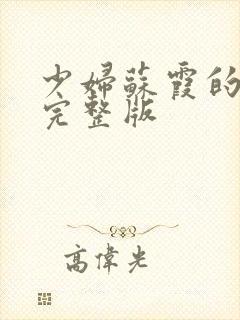 少婦蘇霞的
完整版
高偉光